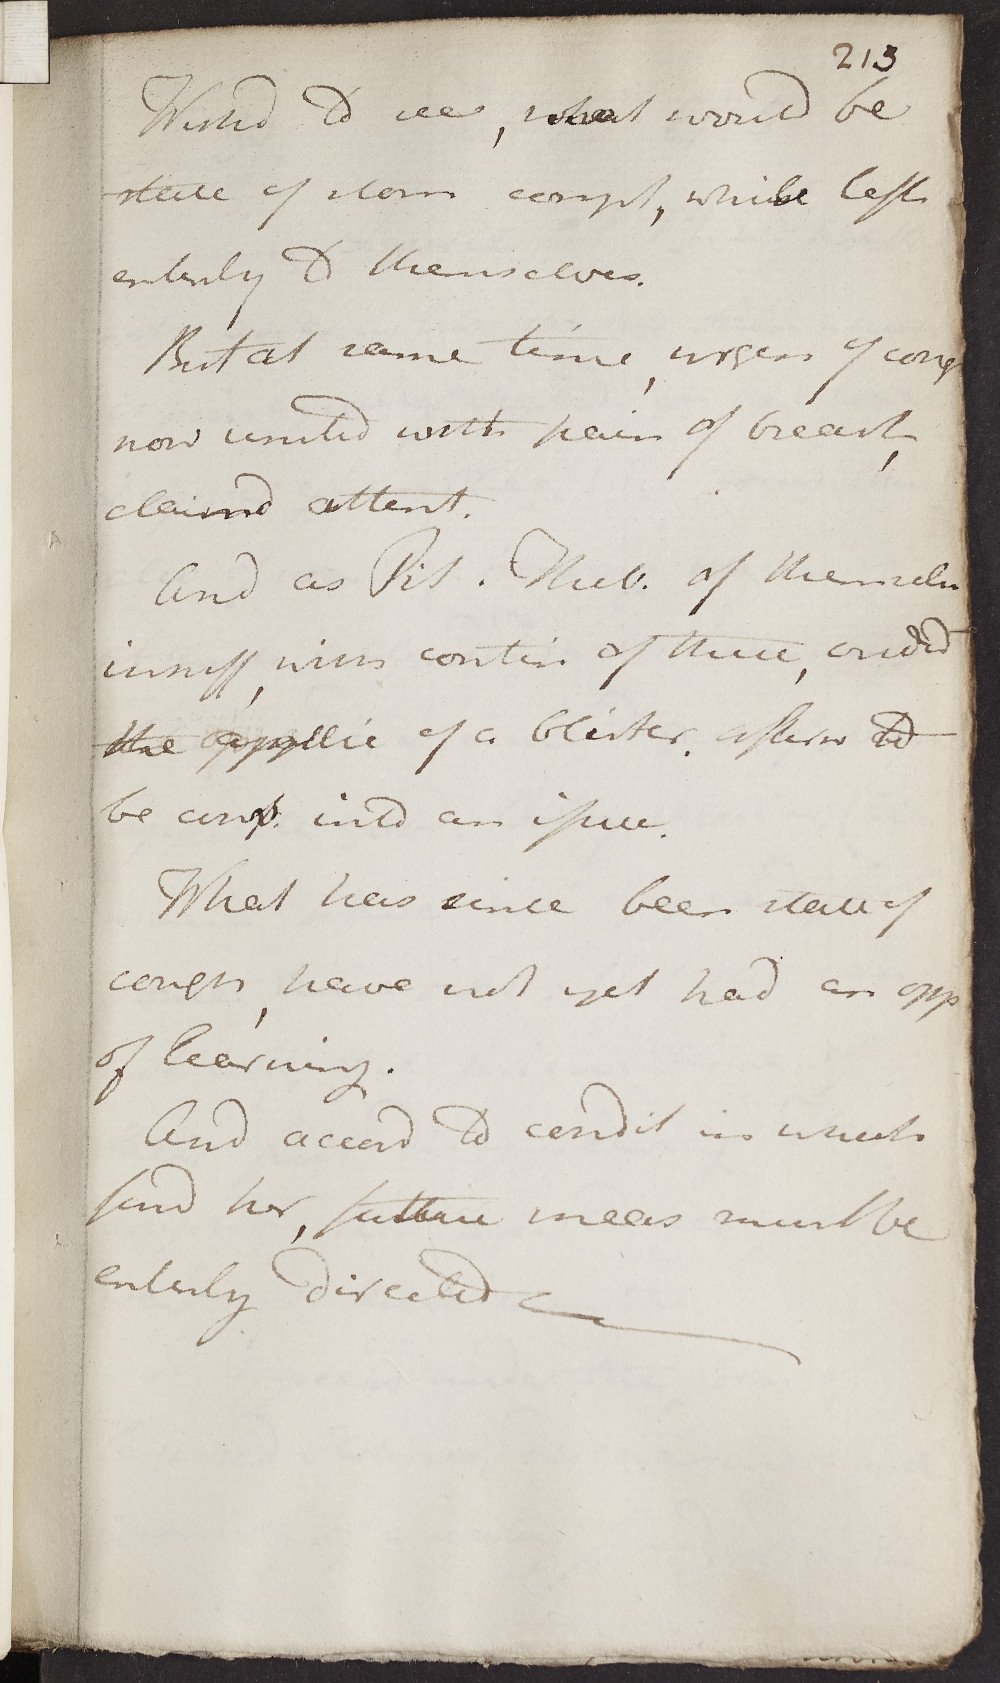 213
Wishd to see, what would be
state of stom compl, while left
enterly to themselves.
But at same time, urgen of coug
now united with pain of breast,
claimd attent.
And as Pil. Theb. of themselv
insuff, with contin of these, ordd
the applic of a blister, afterw to
be conv. into an issue.
What has since been state of
cough, have not yet had an opp
of learning.
And accord to condit in which
find her, future meas must be
enterly directed